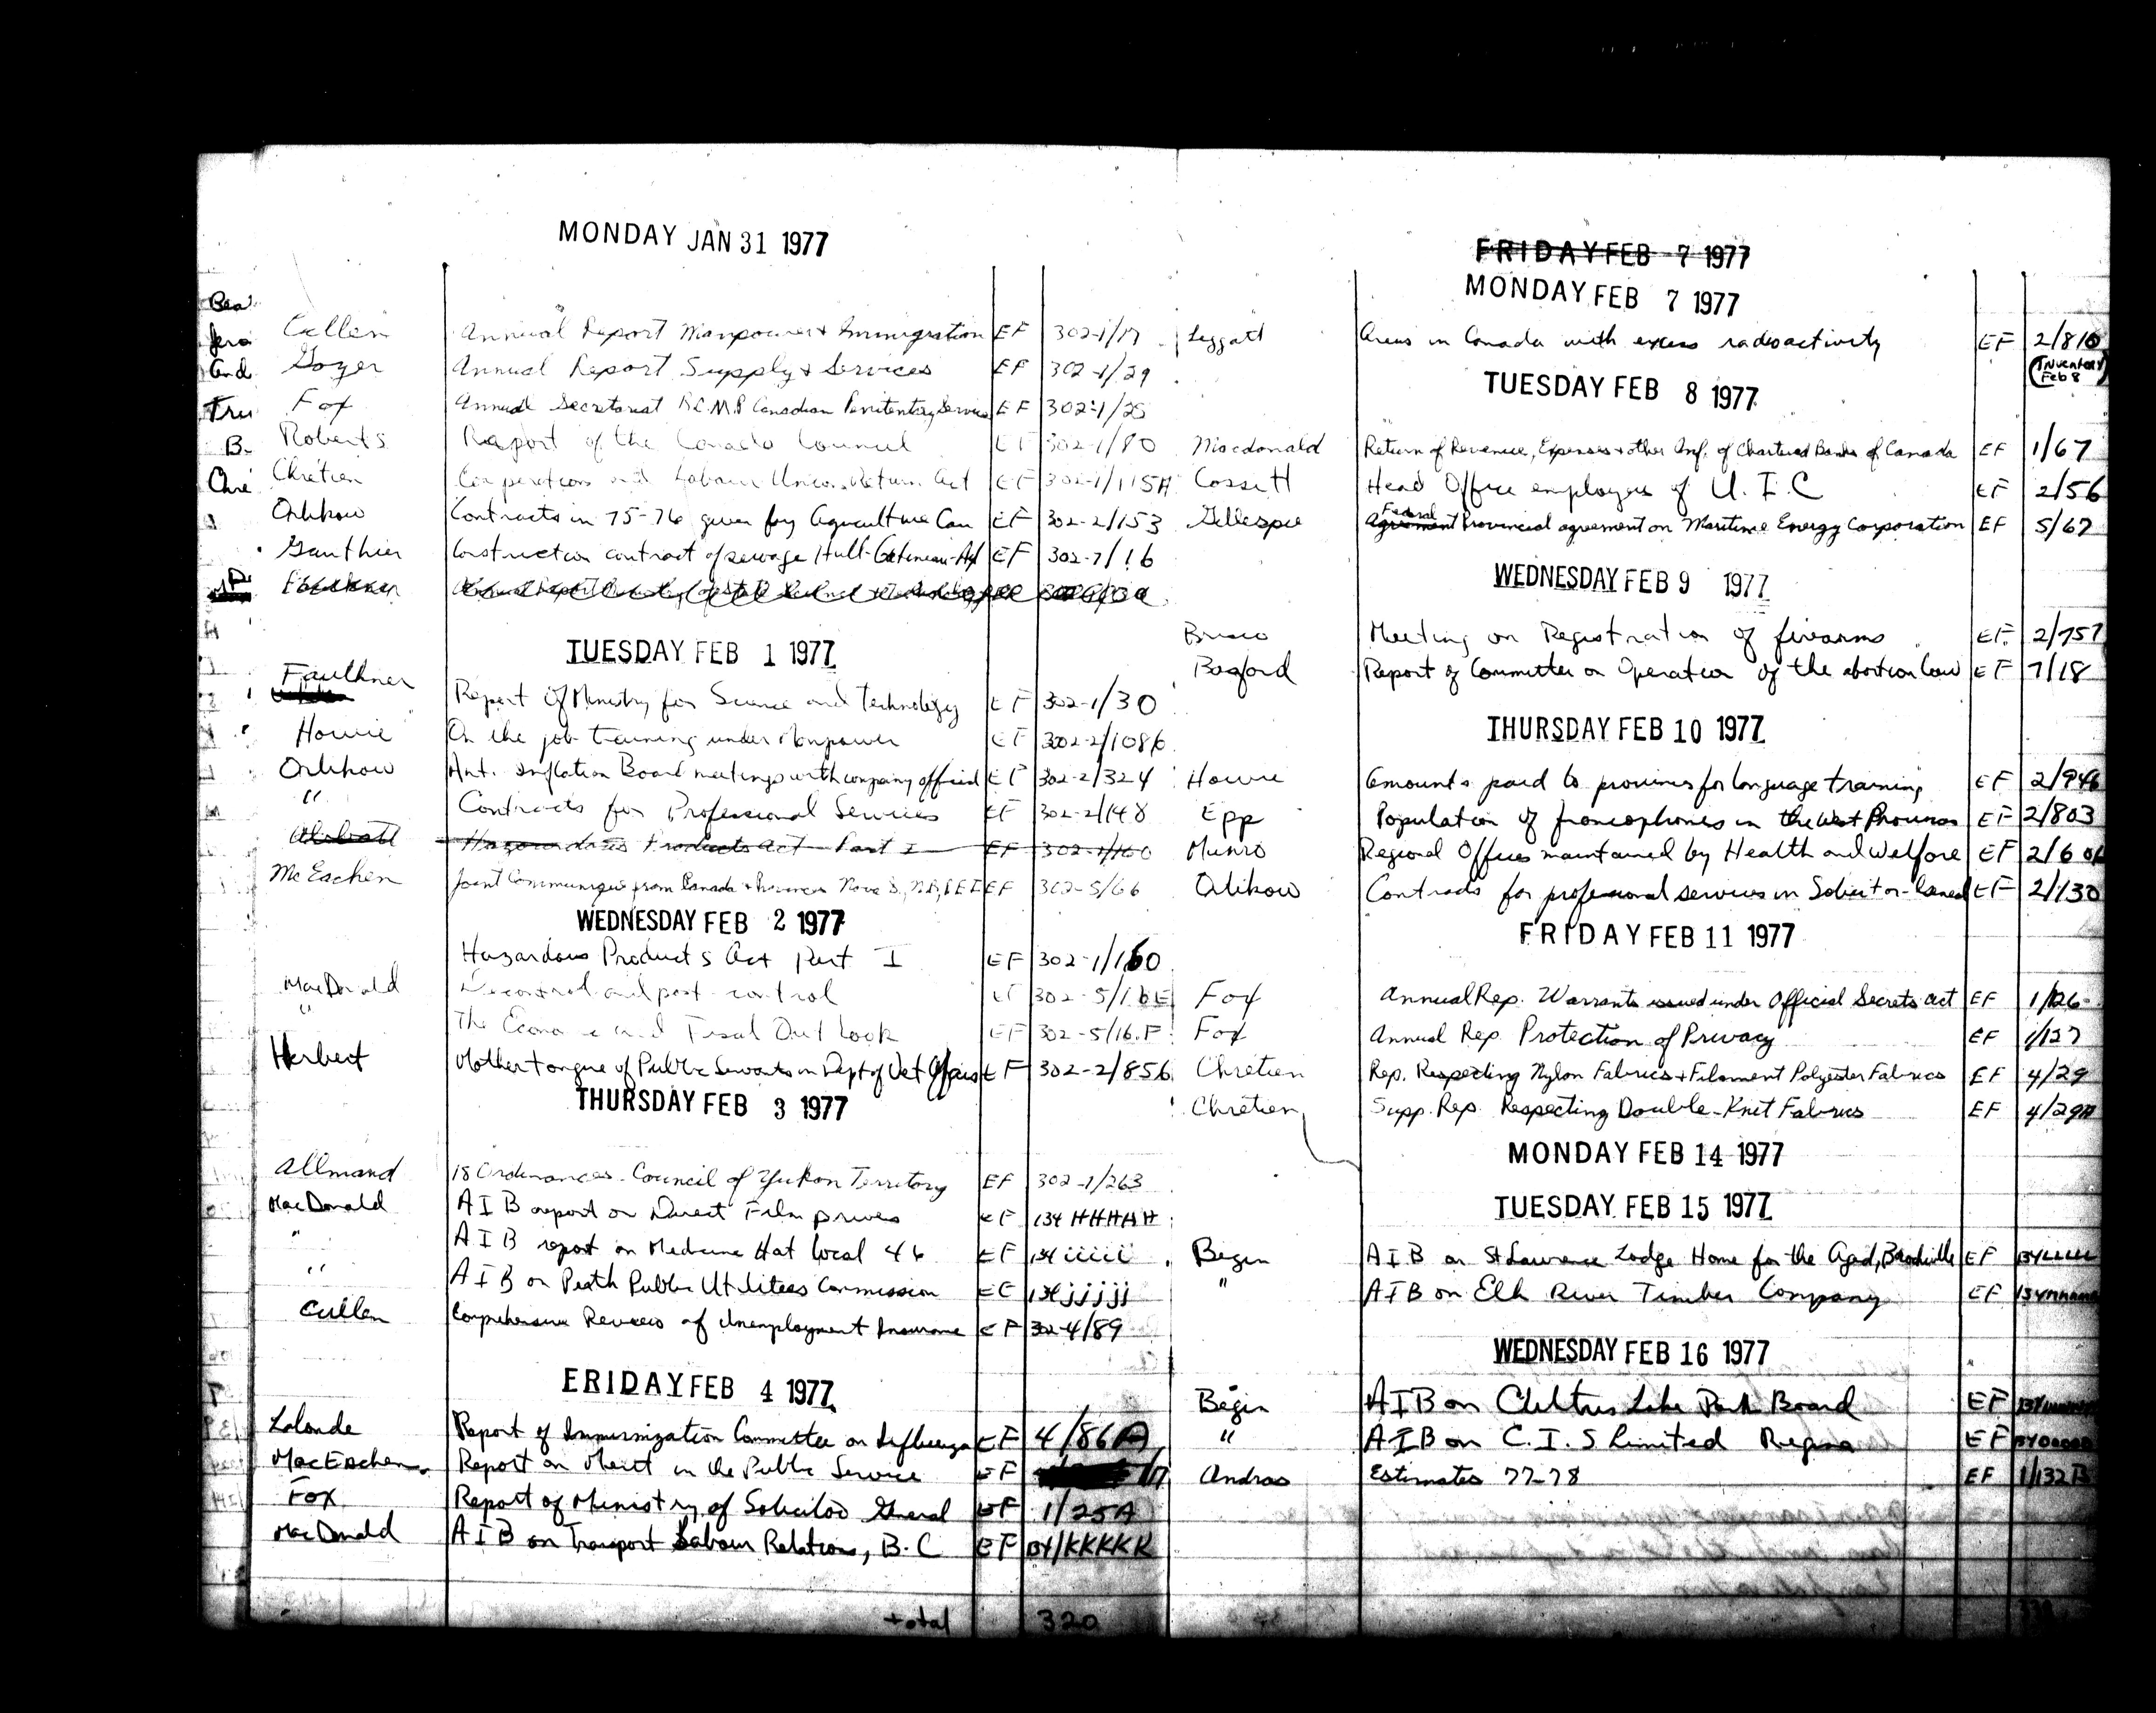 MONDAY JAN 31 1977
Cullen Annual Report Manpower + Immigration EF 302-1/17
Goyer Annual Report Supply + Services EF 302-1/29
Fox Annual Secretariat R.C.M.P Canadian Penitentiary Service EF 302-1/25
Roberts Report of the Canada Council EF 302-1/80
Chrétien Corporations and Labour Unions Return Act EF 302-1/115A
Orlikow Contracts in 75-76 given by Agriculture Can EF 302-2/153
Gauthier Construction contract of sewage Hull-Gatineau-Ayl EF 302-7/16
Faulkner
TUESDAY FEB 1 1977
Faulkner Report of Ministry for Science and Technology EF 302-1/30
Howie On the job training under Manpower EF 302-2/1086
Orlikow Ant. Inflation Board meetings with company official EF 302-2/324
" Contracts for Professional Services EF 302-2/148
Hazardous Products Act Part I EF 302-1/160
McEachen Joint Communique from Canada + Provinces Nova S, NB, PEI EF 302-5/66
WEDNESDAY FEB 2 1977
Hazardous Products Act Part I EF 302-1/160
MacDonald Decontrol and post-control EF 302-5/16E
" The Economic and Fiscal Outlook EF 302-5/16.F
Herbert Mother tongue of Public Servants in Dept of Vet Affairs EF 302-2/856
THURSDAY FEB 3 1977
Allmand 18 Ordinances - Council of Yukon Territory EF 302-1/263
MacDonald AIB report on Direct Film prices EF 134 HHHHH
" AIB report on Medicine Hat Local 46 EF 134 iiiii
" AIB on Perth Public Utilities Commission EF 134 jjjjj
Cullen Comprehensive Review of Unemployment Insurance EF 302-4/89
FRIDAY FEB 4 1977
Lalonde Report of Immunization Committee on Influenza EF 4/86A
MacEachen Report on Merit in the Public Service EF
Fox Report of Ministry of Solicitor General EF 1/25A
MacDonald AIB on Transport Labour Relations, B.C EF 134/KKKKK
total 320
FRIDAY FEB 7 1977
MONDAY FEB 7 1977
Leggatt Areas in Canada with excess radioactivity EF 2/810
(Inventory Feb 8)
TUESDAY FEB 8 1977
Macdonald Return of Revenue, Expenses + other Inf. of Chartered Banks of Canada EF 1/67
Cossitt Head Office employees of U.I.C EF 2/56
Gillespie Agreement Federal Provincial agreement on Maritime Energy Corporation EF 5/67
WEDNESDAY FEB 9 1977
Brisco Meeting on Registration of firearms EF 2/757
Basford Report of Committee on Operation of the abortion law EF 7/18
THURSDAY FEB 10 1977
Howie Amounts paid to provinces for language training EF 2/946
Epp Population of francophones in the West Provinces EF 2/803
Munro Regional Offices maintained by Health and Welfare EF
Orlikow Contracts for professional services in Solicitor-General EF 2/130
FRIDAY FEB 11 1977
Fox Annual Rep. Warrants issued under Official Secrets Act EF 1/126
Fox Annual Rep. Protection of Privacy EF 1/127
Chrétien Rep. Respecting Nylon Fabrics + Filament Polyester Fabrics EF 4/29
Chrétien Supp. Rep. Respecting Double-Knit Fabrics EF 4/29A
MONDAY FEB 14 1977
TUESDAY FEB 15 1977
Begin AIB on St Lawrence Lodge Home for the Aged, Brockville EF 134LLLLL
" AIB on Elk River Timber Company EF
WEDNESDAY FEB 16 1977
Begin AIB on Cultus Lake Park Board EF
" AIB on C.I.S Limited Regina EF 134ooooo
Andras Estimates 77-78 EF 1/132B